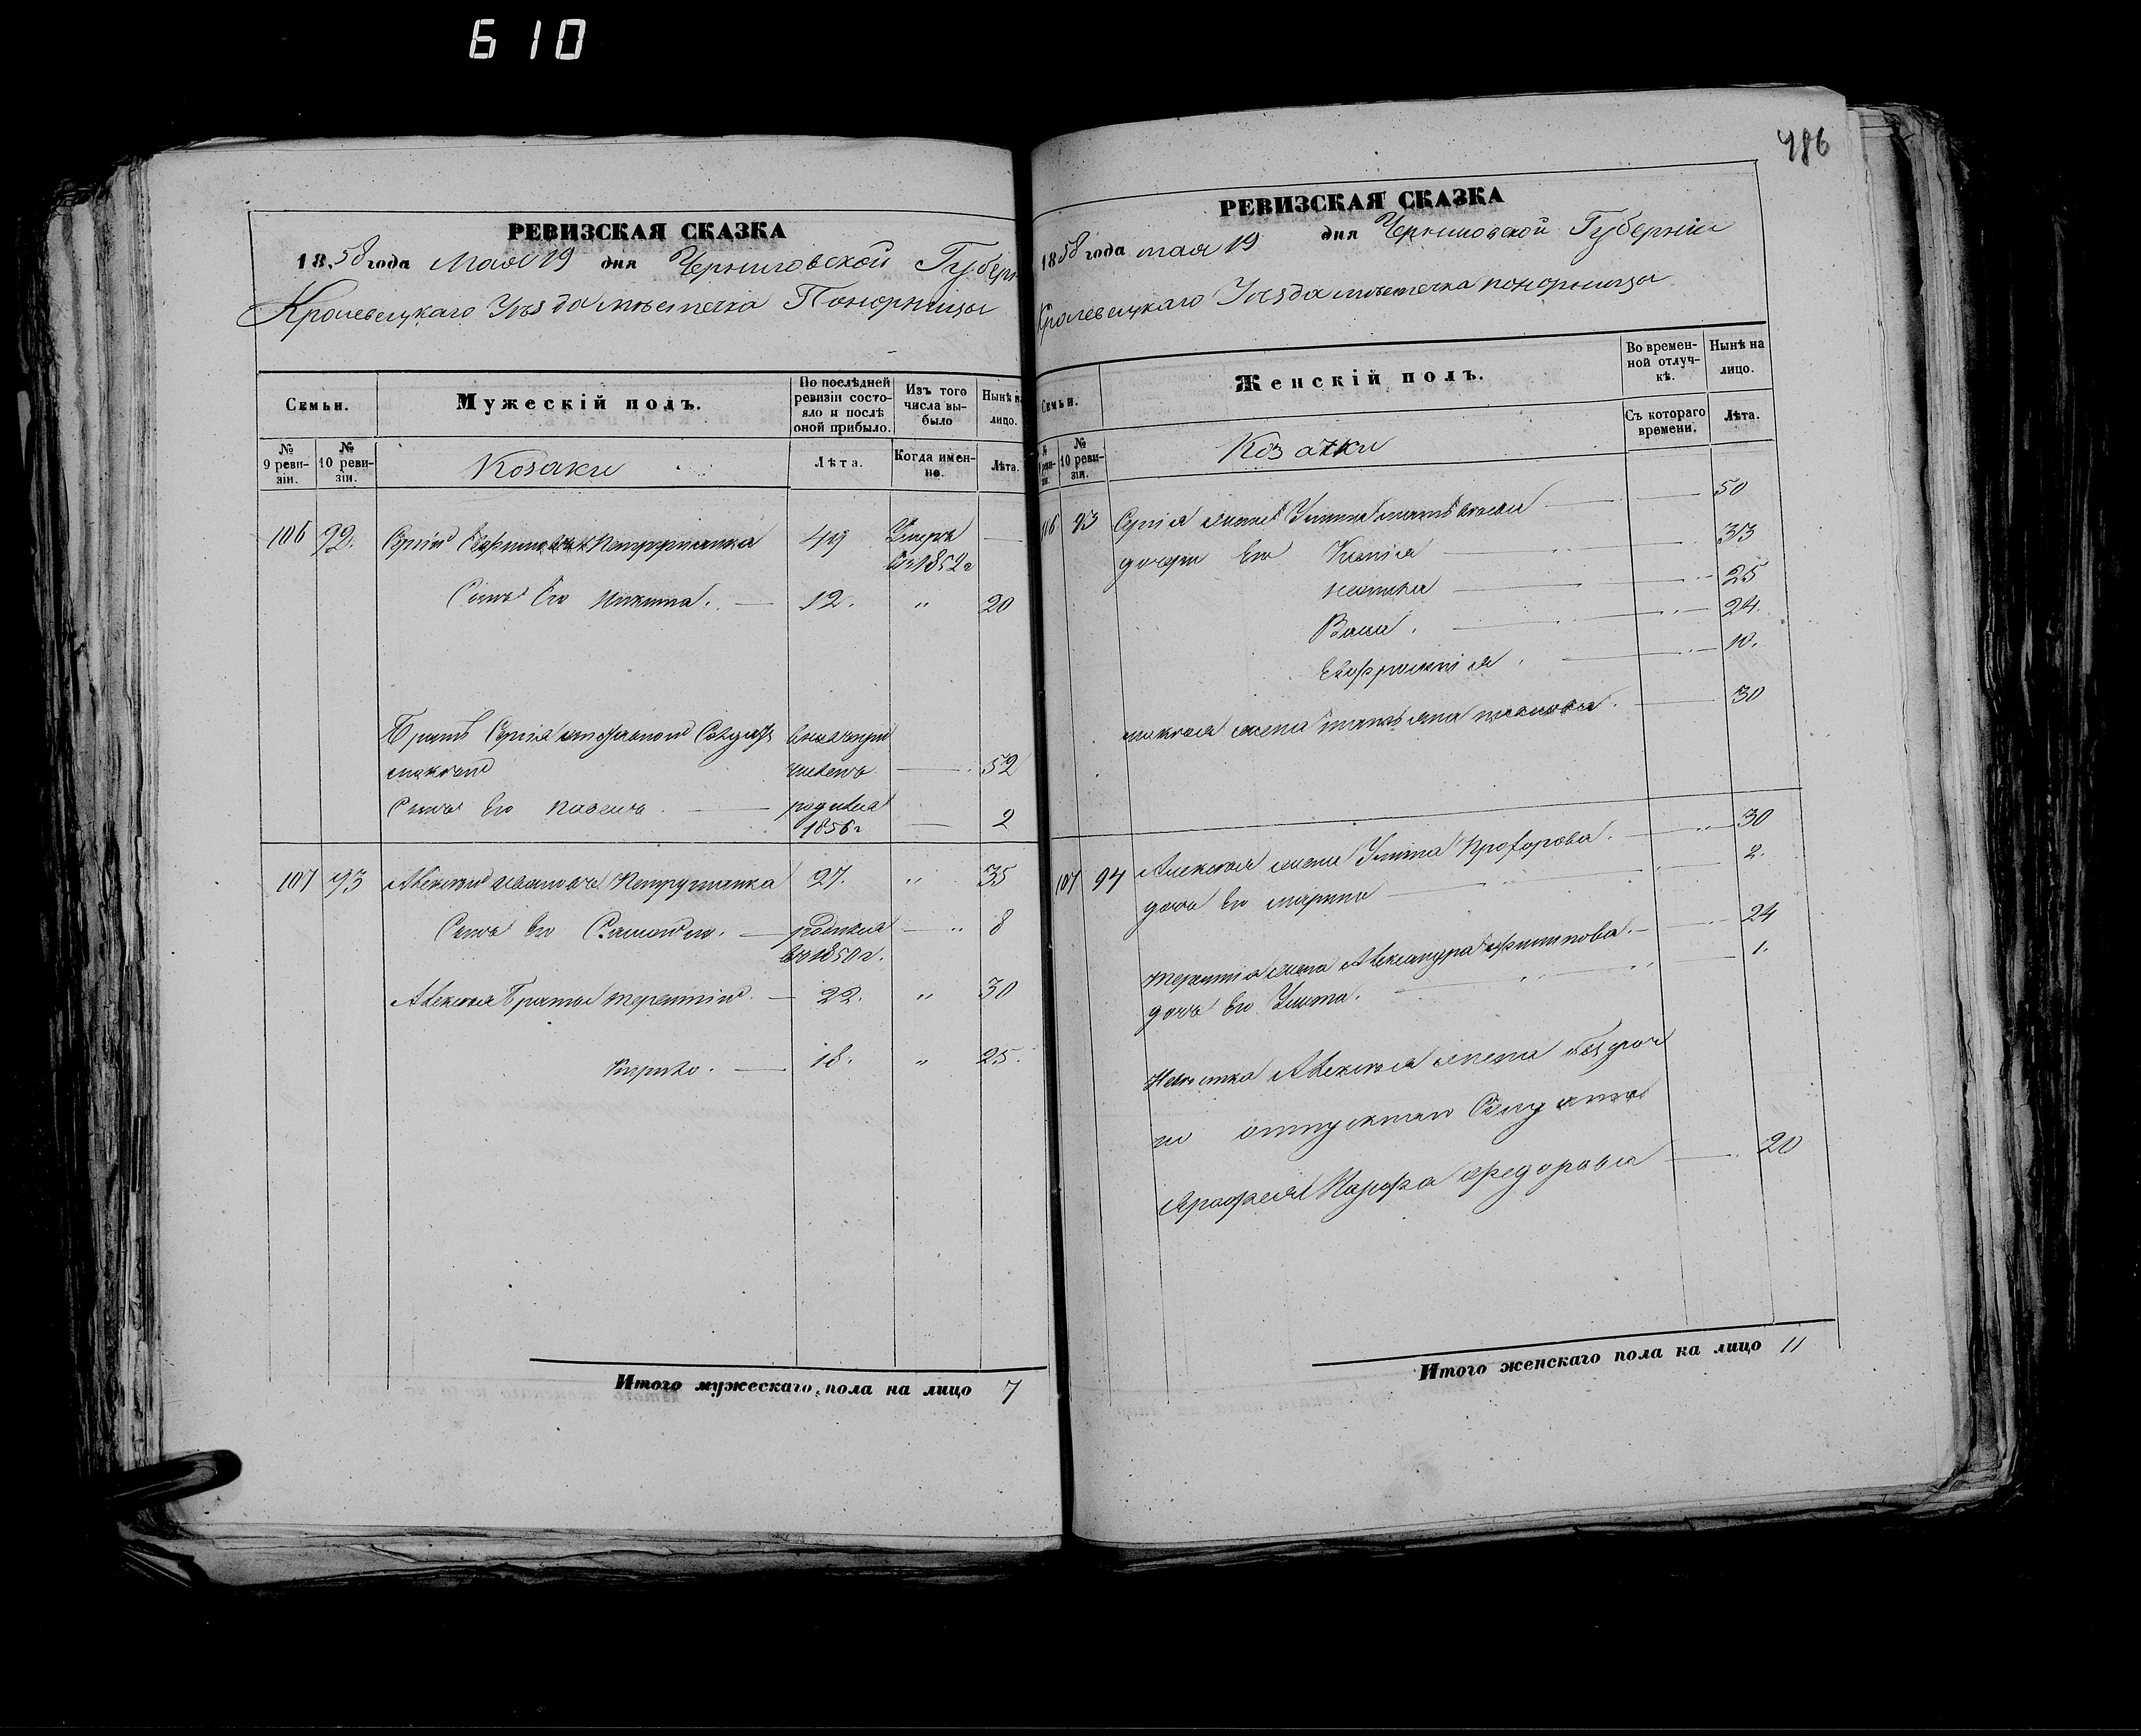 610
486
РЕВИЗСКАЯ СКАЗКА
1858 года Мая 19 дня Черниговской Губерн
Кролевецкаго Уѣзда мѣстечка Понорницы
Семьи.
Мужескій полъ.
По послѣдней ревизіи состояло и послѣ оной прибыло.
Изъ того числа выбыло
Нынѣ на лицо.
№ 9 ревизіи.
№ 10 ревизіи.
Козаки
Лѣта.
Когда именно.
Лѣта.
106 92. Сергій Петрушанка 49 Умеръ
въ 1852 г
Сынъ Его Никита. 12. " 20
Братъ Сергія Солдатъ
52
Сынъ Его Павелъ родился
1856 г 2
107 93 Алексѣй Ивановъ Петрушанка 27. " 35
Сынъ Его Самойло. родился " 8
въ 1850 г.
Алексѣя Братья Терентій 22. " 30
Кирило. 18. " 25.
Итого мужескаго пола на лицо 7
РЕВИЗСКАЯ СКАЗКА
1858 года мая 19 дня Черниговской Губерніи
Кролевецкаго Уѣзда мѣстечка понорницы
Семьи.
Женскій полъ.
Во временной отлучкѣ.
Нынѣ на лицо.
№ 10 ревизіи.
Козачки
Съ котораго времени.
Лѣта.
106 93 Сергія жена Улита 50
дочери Его Ксенія 33
25
24
Евфросинія 10.
жена татьяна 30
107 94 Алексѣя жена Улита Прохорова. 30
дочь Его марина 2.
Терентія жена Александра Филипова. 24
дочь Его Улита. 1.
Алексѣя жена безсроч
но отпускнаго Солдата
Федорова 20
Итого женскаго пола на лицо 11